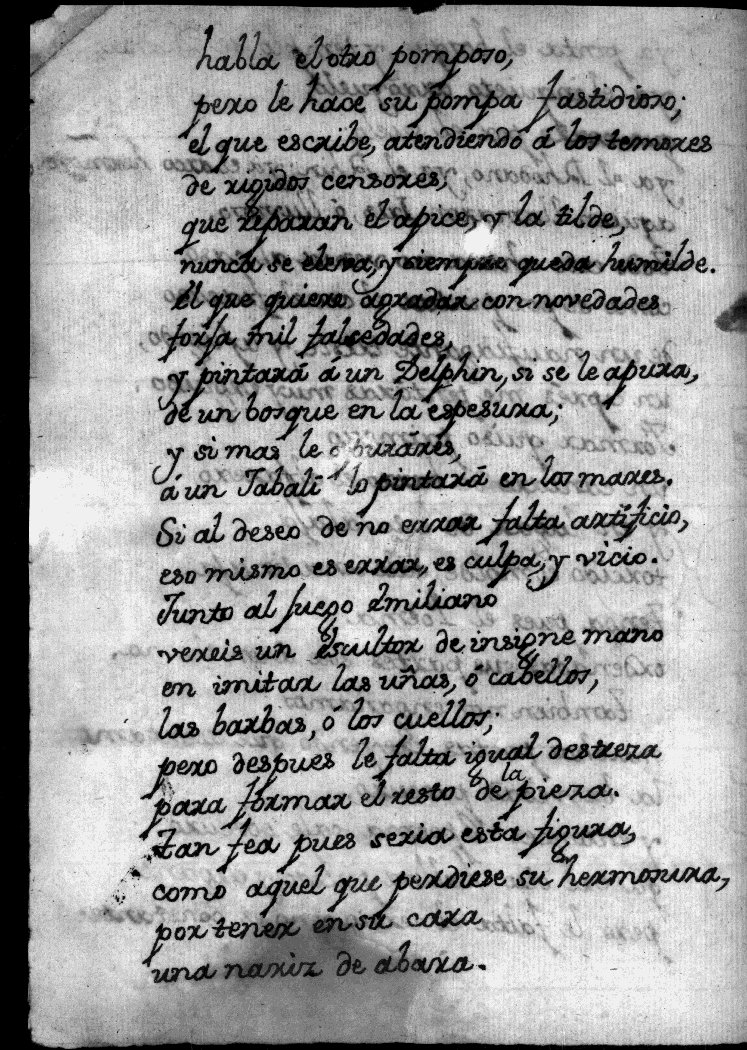 habla el otro pomposo,
pero le hace su pompa fastidioso;
el que escribe, atendiendo á los temores
de rigidos censores,
que reparan el apice, y la tilde,
nunca se eleva, y siempre queda humilde.
El que quiere agradar con novedades
forja mil falsedades,
y pintará á un Delphin, si se le apura,
de un bosque en la espesura;
y si mas le apuráres,
á un Jabalí lo pintará en los mares.
Si al deseo de no errar falta artificio,
eso mismo es errar, es culpa, y vicio.
Junto al fuego Emiliano
vereis un Escultor de insigne mano
en imitar las uñas, ó cabellos,
las barbas, ó los cuellos;
pero despues le falta igual destreza
para formar el resto de la pieza.
Tan fea pues seria esta figura,
como aquel que perdiese su hermosura,
por tener en su cara
una nariz de abara.